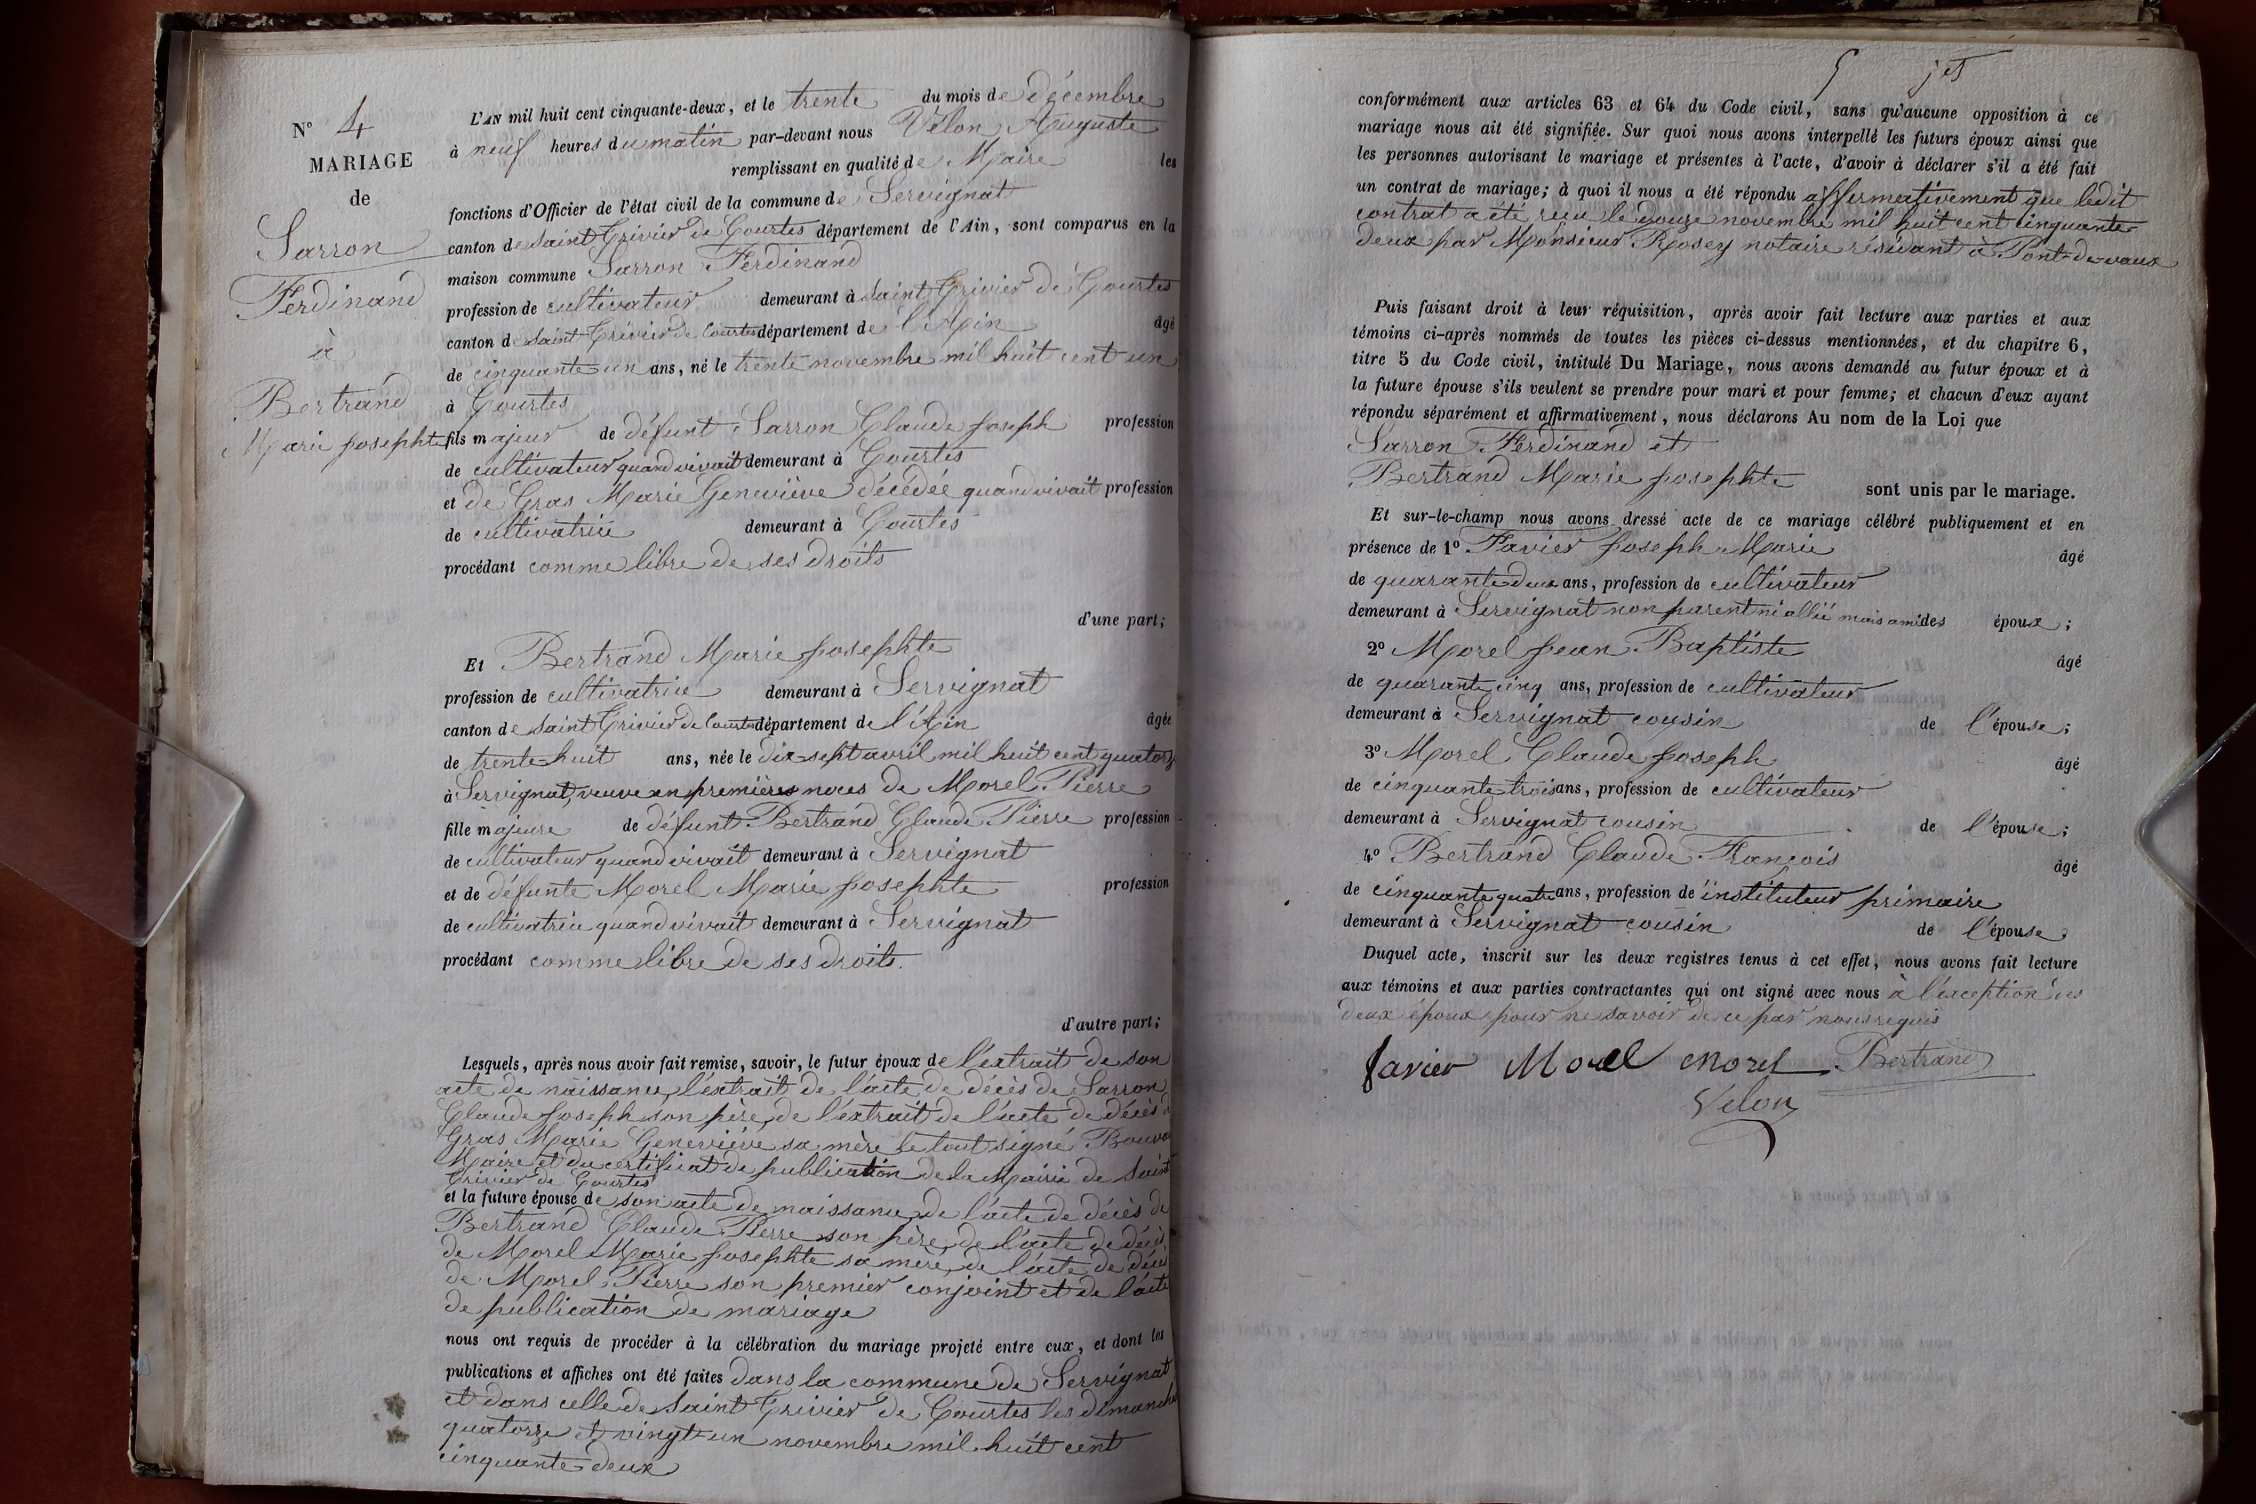 N° 4
MARIAGE
de
Sarron
Ferdinand
à
Bertrand
Marie Josephte
L'AN mil huit cent cinquante-deux, et le trente du mois de décembre
à neuf heures du matin par-devant nous Vélon Auguste
remplissant en qualité de Maire les
fonctions d'Officier de l'état civil de la commune de Servignat
canton de Saint Trivier de Courtes département de l'Ain, sont comparus en la
maison commune Sarron Ferdinand
profession de cultivateur demeurant à Saint Trivier de Courtes
canton de Saint Trivier de Courtes département de l'Ain âgé
de cinquante un ans, né le trente novembre mil huit cent un
à Courtes
fils majeur de défunt Sarron Claude Joseph profession
de cultivateur quand vivait demeurant à Courtes
et de Gras Marie Geneviève décédée quand vivait profession
de cultivatrice demeurant à Courtes
procédant comme libre de ses droits
d'une part;
Et Bertrand Marie Josephte
profession de cultivatrice demeurant à Servignat
canton de Saint Trivier de Courtes département de l'Ain âgée
de trente-huit ans, née le dix-sept avril mil huit cent quatorze
à Servignat, veuve en premières noces de Morel Pierre
fille majeure de défunt Bertrand Claude Pierre profession
de cultivateur quand vivait demeurant à Servignat
et de défunte Morel Marie Josephte profession
de cultivatrice quand vivait demeurant à Servignat
procédant comme libre de ses droits.
d'autre part;
Lesquels, après nous avoir fait remise, savoir, le futur époux de l'extrait de son
acte de naissance, l'extrait de l'acte de décès de Sarron
Claude Joseph son père, de l'extrait de l'acte de décès de
Gras Marie Geneviève sa mère le tout signé
Maire et du certificat de publication de la Mairie de Saint
Trivier de Courtes
et la future épouse de son acte de naissance, de l'acte de décès de
Bertrand Claude Pierre son père, de l'acte de décès
de Morel Marie Josephte sa mère, de l'acte de décès
de Morel Pierre son premier conjoint et de l'acte
de publication de mariage
nous ont requis de procéder à la célébration du mariage projeté entre eux, et dont les
publications et affiches ont été faites dans la commune de Servignat
et dans celle de Saint Trivier de Courtes les dimanches
quatorze et vingt-un novembre mil huit cent
cinquante-deux
conformément aux articles 63 et 64 du Code civil, sans qu'aucune opposition à ce
mariage nous ait été signifiée. Sur quoi nous avons interpellé les futurs époux ainsi que
les personnes autorisant le mariage et présentes à l'acte, d'avoir à déclarer s'il a été fait
un contrat de mariage; à quoi il nous a été répondu affirmativement que ledit
contrat a été reçu le douze novembre mil huit cent cinquante
deux par Monsieur Rosey notaire résidant à Pont-de-vaux
Puis faisant droit à leur réquisition, après avoir fait lecture aux parties et aux
témoins ci-après nommés de toutes les pièces ci-dessus mentionnées, et du chapitre 6,
titre 5 du Code civil, intitulé Du Mariage, nous avons demandé au futur époux et à
la future épouse s'ils veulent se prendre pour mari et pour femme; et chacun d'eux ayant
répondu séparément et affirmativement, nous déclarons Au nom de la Loi que
Sarron Ferdinand et
Bertrand Marie Josephte sont unis par le mariage.
Et sur-le-champ nous avons dressé acte de ce mariage célébré publiquement et en
présence de 1° Favier Joseph Marie âgé
de quarante-deux ans, profession de cultivateur
demeurant à Servignat non parent ni allié mais ami des époux;
2° Morel Jean Baptiste âgé
de quarante cinq ans, profession de cultivateur
demeurant à Servignat cousin de l'épouse;
3° Morel Claude Joseph âgé
de cinquante-trois ans, profession de cultivateur
demeurant à Servignat cousin de l'épouse;
4° Bertrand Claude François âgé
de cinquante quatre ans, profession de instituteur primaire
demeurant à Servignat cousin de l'épouse
Duquel acte, inscrit sur les deux registres tenus à cet effet, nous avons fait lecture
aux témoins et aux parties contractantes qui ont signé avec nous à l'exception des
deux époux pour ne savoir de ce par nous requis
favier Morel Morel Bertrand
Velon